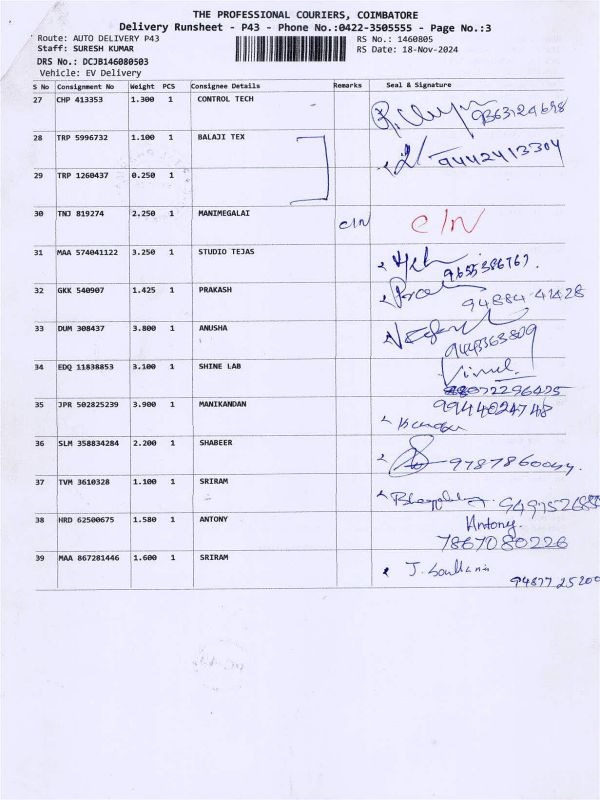 THE PROFESSIONAL COURIERS, COIMBATORE
Delivery Runsheet - P43 - Phone No.:0422-3505555 - Page No.:3
Route: AUTO DELIVERY P43 RS No.: 1460805
Staff: SURESH KUMAR RS Date: 18-Nov-2024
DRS No.: DCJB146080503
Vehicle: EV Delivery
S No Consignment No Weight PCS Consignee Details Remarks Seal & Signature
27 CHP 413353 1.300 1 CONTROL TECH 9363124698
28 TRP 5996732 1.100 1 BALAJI TEX 9442413304
29 TRP 1260437 0.250 1
30 TNJ 819274 2.250 1 MANIMEGALAI C/N C/N
31 MAA 574041122 3.250 1 STUDIO TEJAS 9655386767.
32 GKK 540907 1.425 1 PRAKASH 94884 41428
33 DUM 308437 3.800 1 ANUSHA 9443363809
34 EDQ 11838853 3.100 1 SHINE LAB Vimal
8072296425
35 JPR 502825239 3.900 1 MANIKANDAN 9944024748
36 SLM 358834284 2.200 1 SHABEER
37 TVM 3610328 1.100 1 SRIRAM
38 HRD 62500675 1.580 1 ANTONY Antony.
7867080226
39 MAA 867281446 1.600 1 SRIRAM
94877 25200